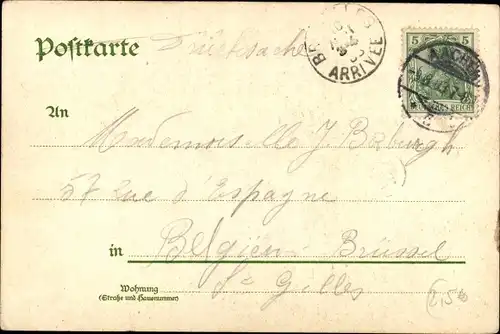 Postkarte
Drucksache
ARRIVÉE
5 5
AACHEN
REICH
An
Mademoiselle J.
57 Rue d'Espagne
in Belgien Brüssel
St Gilles
Wohnung
(Straße und Hausnummer)